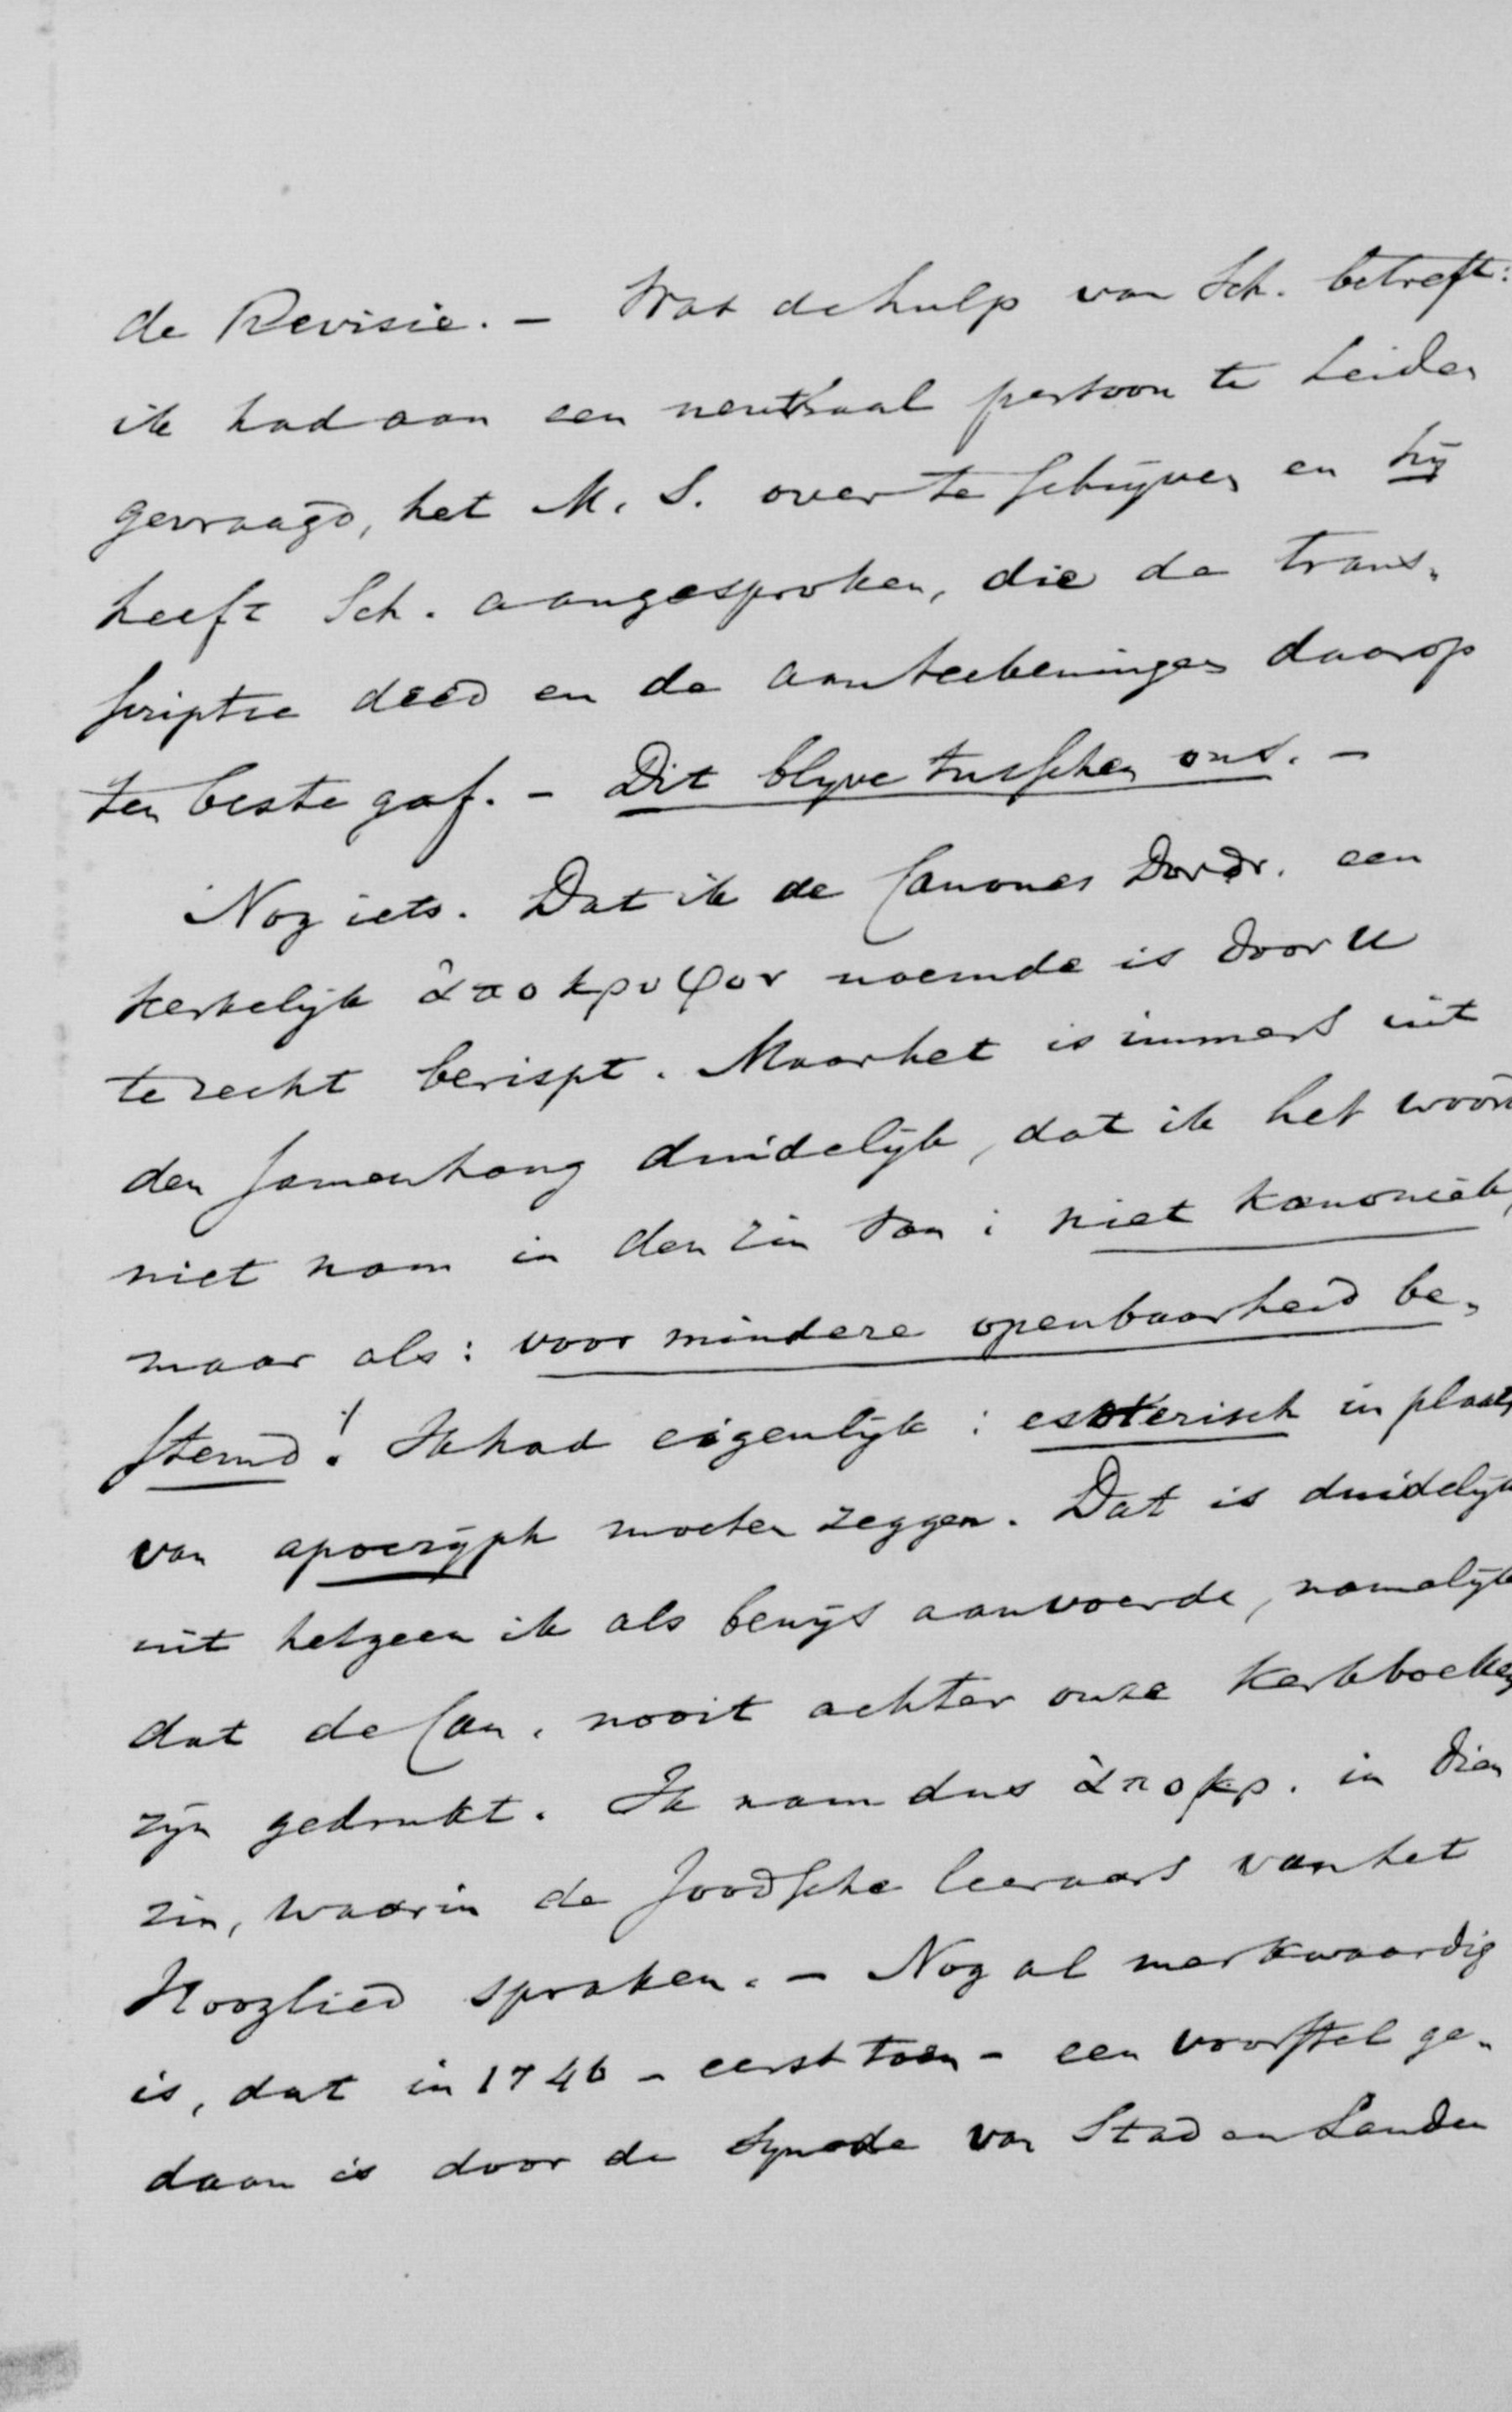 de Revisie. – Wat de hulp van Sch. betreft:
ik had aan een neutraal persoon te Leiden
gevraagd, het M. S. over te schrijven en hij
heeft Sch. aangesproken, die de trans-
scriptie deed en de aanteekeningen daarop
ten beste gaf. – Dit blyve tusschen ons. –
Nog iets. Dat ik de Canones Dordr. een
kerkelijk ἀποκρυφον noemde is door U
te recht berispt. Maar het is immers uit
den samenhang duidelijk, dat ik het woord
niet nam in den zin van: niet kanoniek,
maar als: voor mindere openbaarheid be-
stemd! Ik had eigenlijk: esoterisch in plaats
van apocryph moeten zeggen. Dat is duidelijk
uit hetgeen ik als bewijs aanvoerde, namelijk
dat de Can. nooit achter onze kerkboeken
zijn gedrukt. Ik nam dus ἀποκρ. in dien
zin, waarin de Joodsche leeraars van het
Hooglied spraken. – Nog al merkwaardig
is, dat in 1746 – eerst toen – een voorstel ge-
daan is door de Synode van Stad en Landen